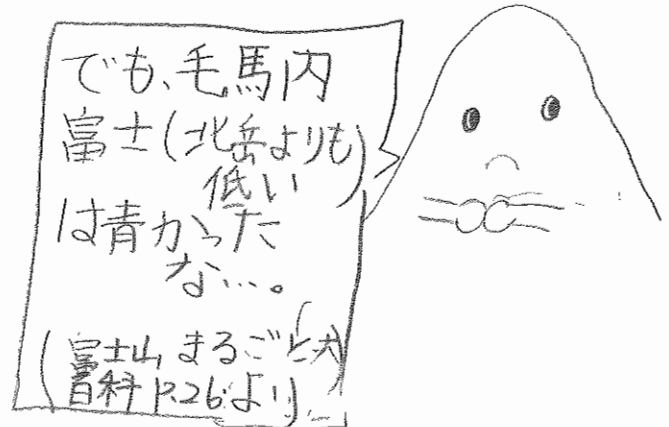 でも、毛馬内
富士(北岳よりも
低い)
は青かった
な…。
(富士山まるごと大
百科P.26より)